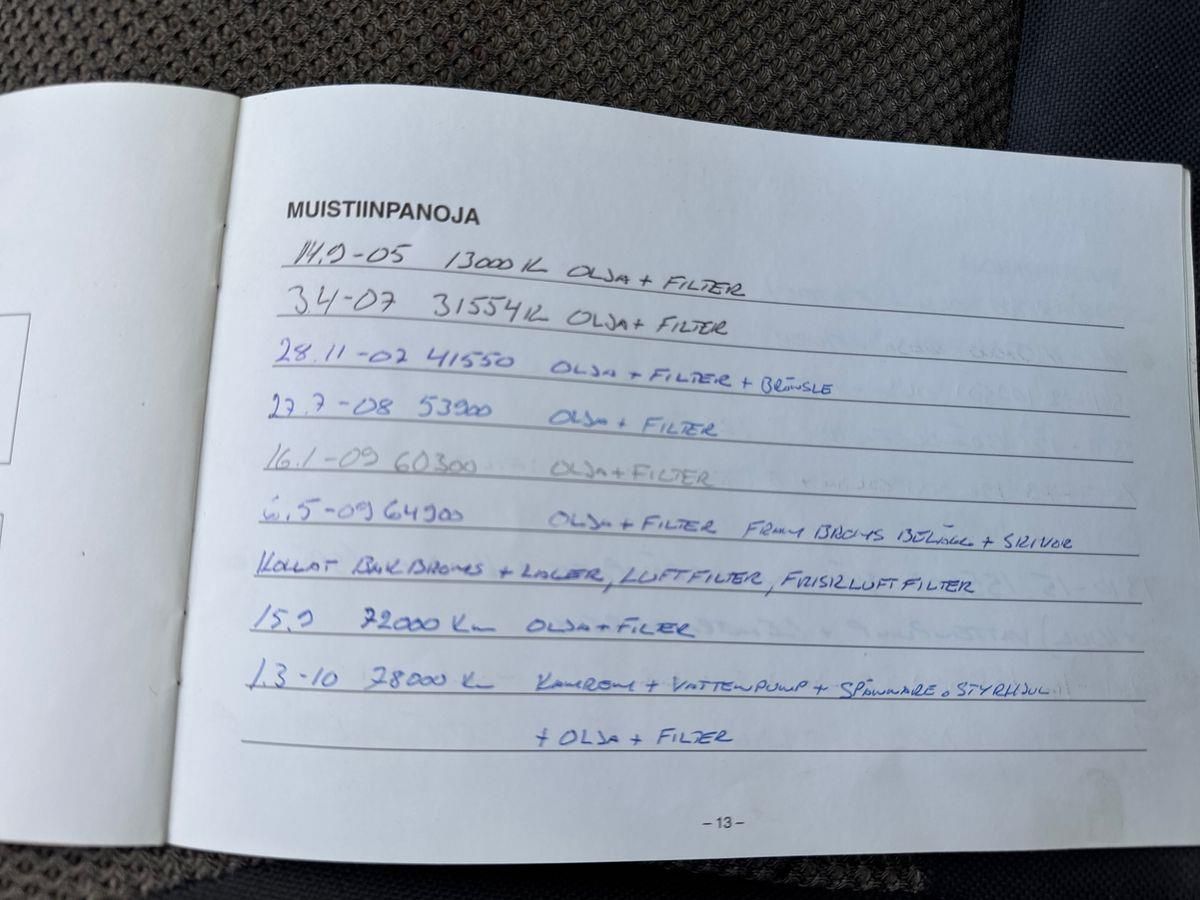 MUISTIINPANOJA
14.9-05 13000 K OLJA + FILTER
3.4-07 31554 K OLJA + FILTER
28.11-07 41550 OLJA + FILTER + BRÄNSLE
27.7-08 53900 OLJA + FILTER
16.1-09 60300 OLJA + FILTER
6.5-09 64900 OLJA + FILTER FRAM BROMS BELÄGG + SKIVOR
KOLLAT BAK BROMS + LAGER, LUFTFILTER, FRISKLUFTFILTER
15.9 72000 Km OLJA + FILTER
1.3-10 78000 Km KAMREM + VATTENPUMP + SPÄNNARE o STYRHJUL
+ OLJA + FILTER
– 13 –